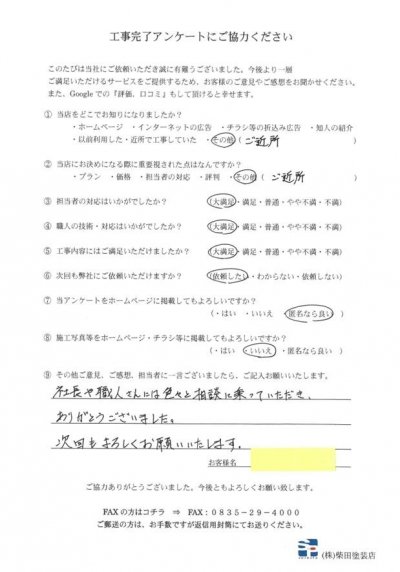 工事完了アンケートにご協力ください
このたびは当社にご依頼いただき誠に有難うございました。今後より一層
ご満足いただけるサービスをご提供するため、お客様のご意見やご感想をお聞かせください。
また、Googleでの『評価、口コミ』もして頂けると幸せます。
① 当店をどこでお知りになりましたか？
・ホームページ ・インターネットの広告 ・チラシ等の折込み広告 ・知人の紹介
・以前利用した・近所で工事していた ・その他（ ご近所 ）
② 当店にお決めになる際に重要視された点はなんですか？
・プラン ・価格 ・担当者の対応 ・評判 ・その他（ ご近所 ）
③ 担当者の対応はいかがでしたか？ （大満足・満足・普通・やや不満・不満）
④ 職人の技術・対応はいかがでしたか？ （大満足・満足・普通・やや不満・不満）
⑤ 工事内容にはご満足いただけましたか？ （大満足・満足・普通・やや不満・不満）
⑥ 次回も弊社にご依頼いただけますか？ （依頼したい・わからない・依頼しない）
⑦ 当アンケートをホームページに掲載してもよろしいですか？
（・はい ・いいえ ・匿名なら良い）
⑧ 施工写真等をホームページ・チラシ等に掲載してもよろしいですか？
（・はい ・いいえ ・匿名なら良い）
⑨ その他ご意見、ご感想、担当者に一言ございましたら、ご記入お願いいたします。
社長や職人さんには色々と相談に乗っていただき、
ありがとうございました。
次回もよろしくお願いいたします。
お客様名
ご協力ありがとうございました。今後ともよろしくお願い致します。
FAXの方はコチラ ⇒ FAX：0835-29-4000
ご郵送の方は、お手数ですが返信用封筒にてお送りください。
(株)柴田塗装店